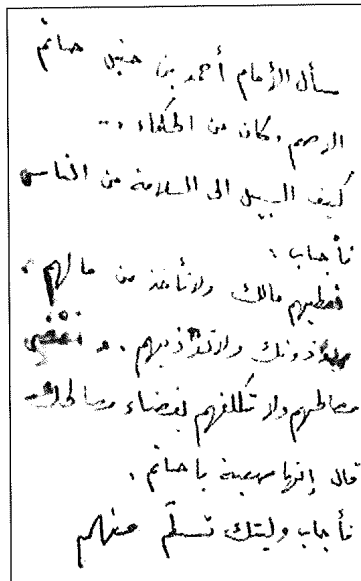 سأل الإمام أحمد بن حنبل حاتم
الاصم وكان من الحكماء ..
كيف السبيل الى السلامة من الناس
فأجاب :
تعطيهم مالك ولا تأخذ من مالهم ،
ويؤذونك ولا تؤذيهم . و تقضي
مصالحهم ولا تكلفهم بقضاء مصالحك
قال إنها صعبة يا حاتم .
فأجاب وليتك تسلم منهم